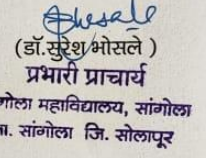 Bhosale
(डॉ.सुरेश भोसले )
प्रभारी प्राचार्य
गोला महाविद्यालय, सांगोला
ा. सांगोला जि. सोलापूर